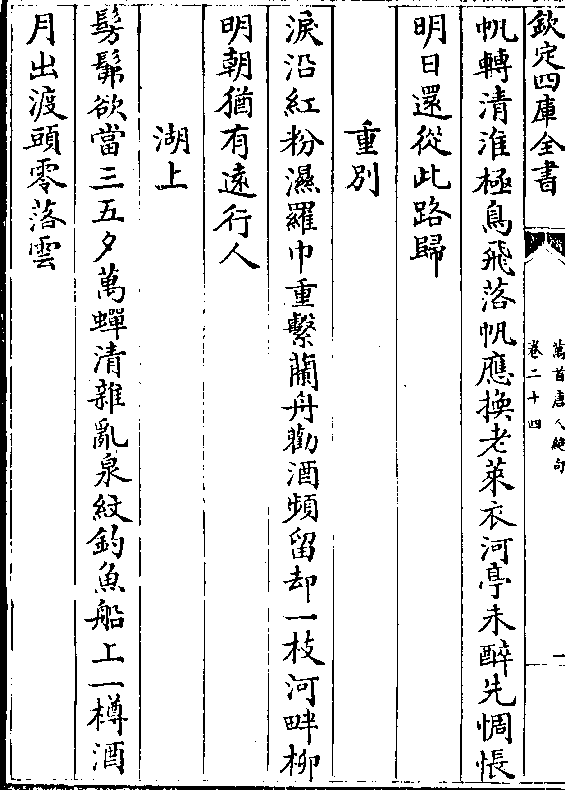 欽定四庫全書
萬首唐人絶句
卷二十四
一
帆轉清淮極鳥飛落帆應換老萊衣河亭未醉先惆悵
明日還從此路歸
重別
淚沿紅粉濕羅巾重繫蘭舟勸酒頻留却一枝河畔柳
明朝猶有遠行人
湖上
髣髴欲當三五夕萬蟬清雜亂泉紋釣魚船上一樽酒
月出渡頭零落雲